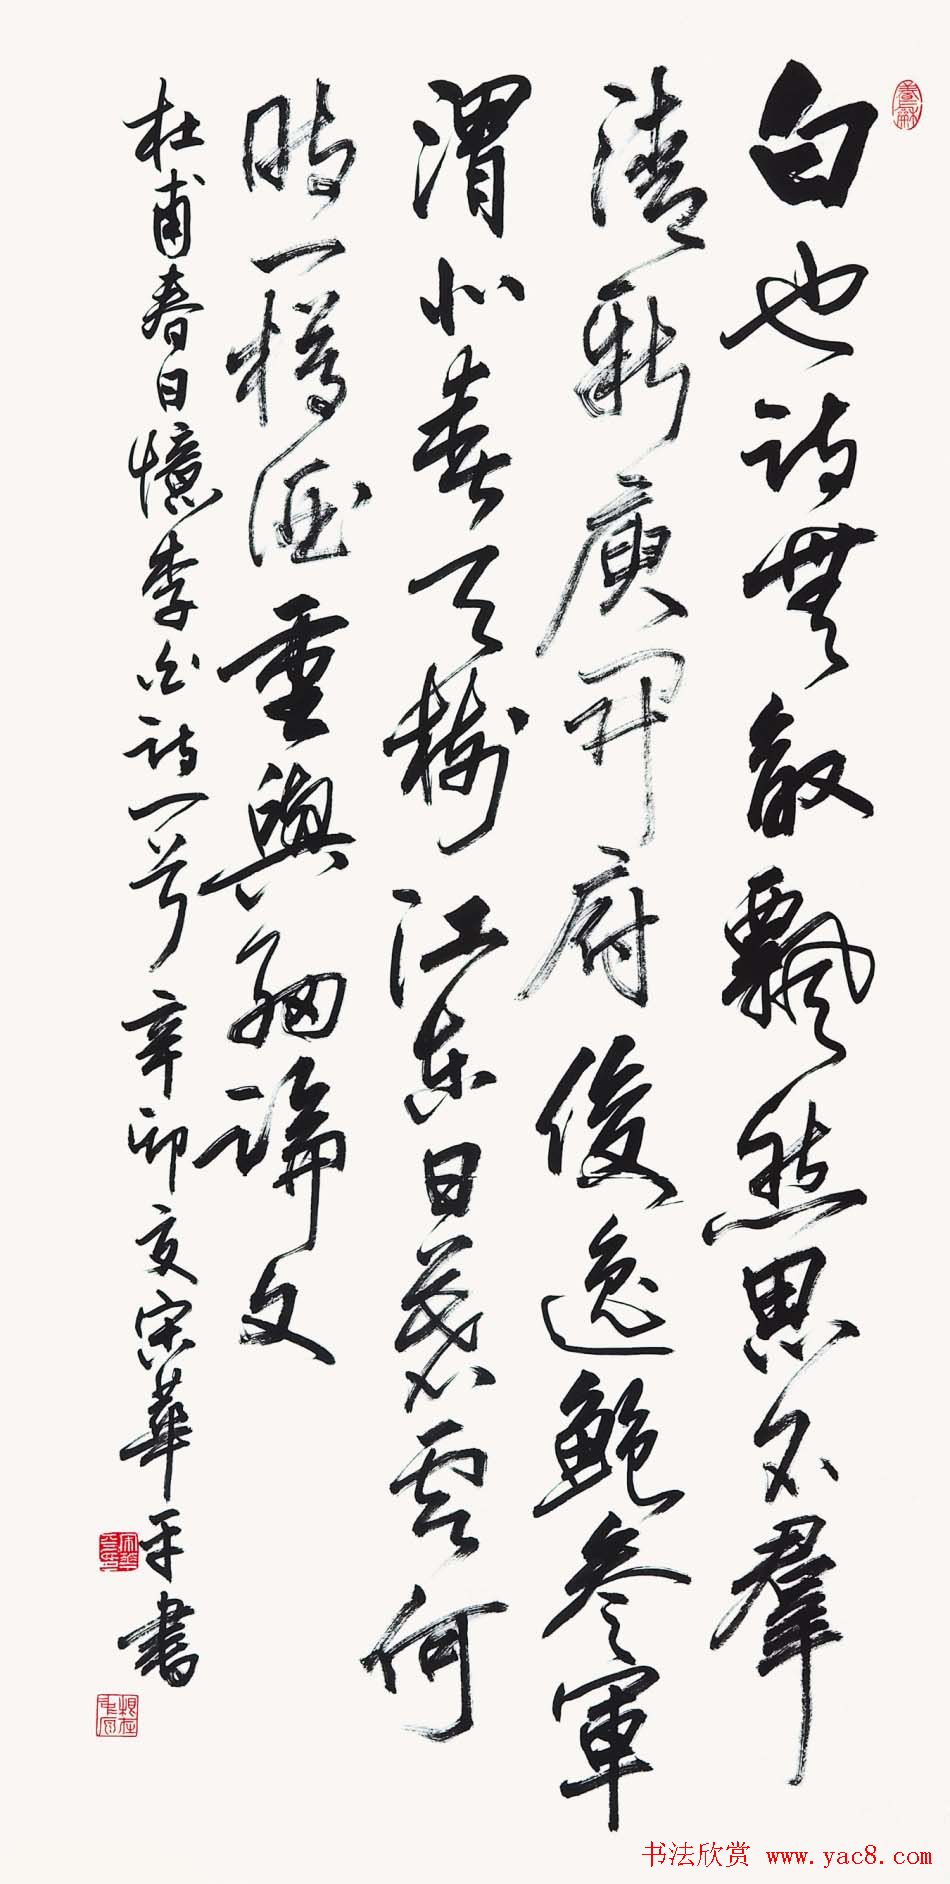 白也詩無敵飄然思不羣
清新庾開府俊逸鮑参軍
渭北春天樹江東日暮雲何
時一樽酒重與細論文
杜甫春日憶李白詩一首辛卯亥宋華平書
书法欣赏 www.yac8.com